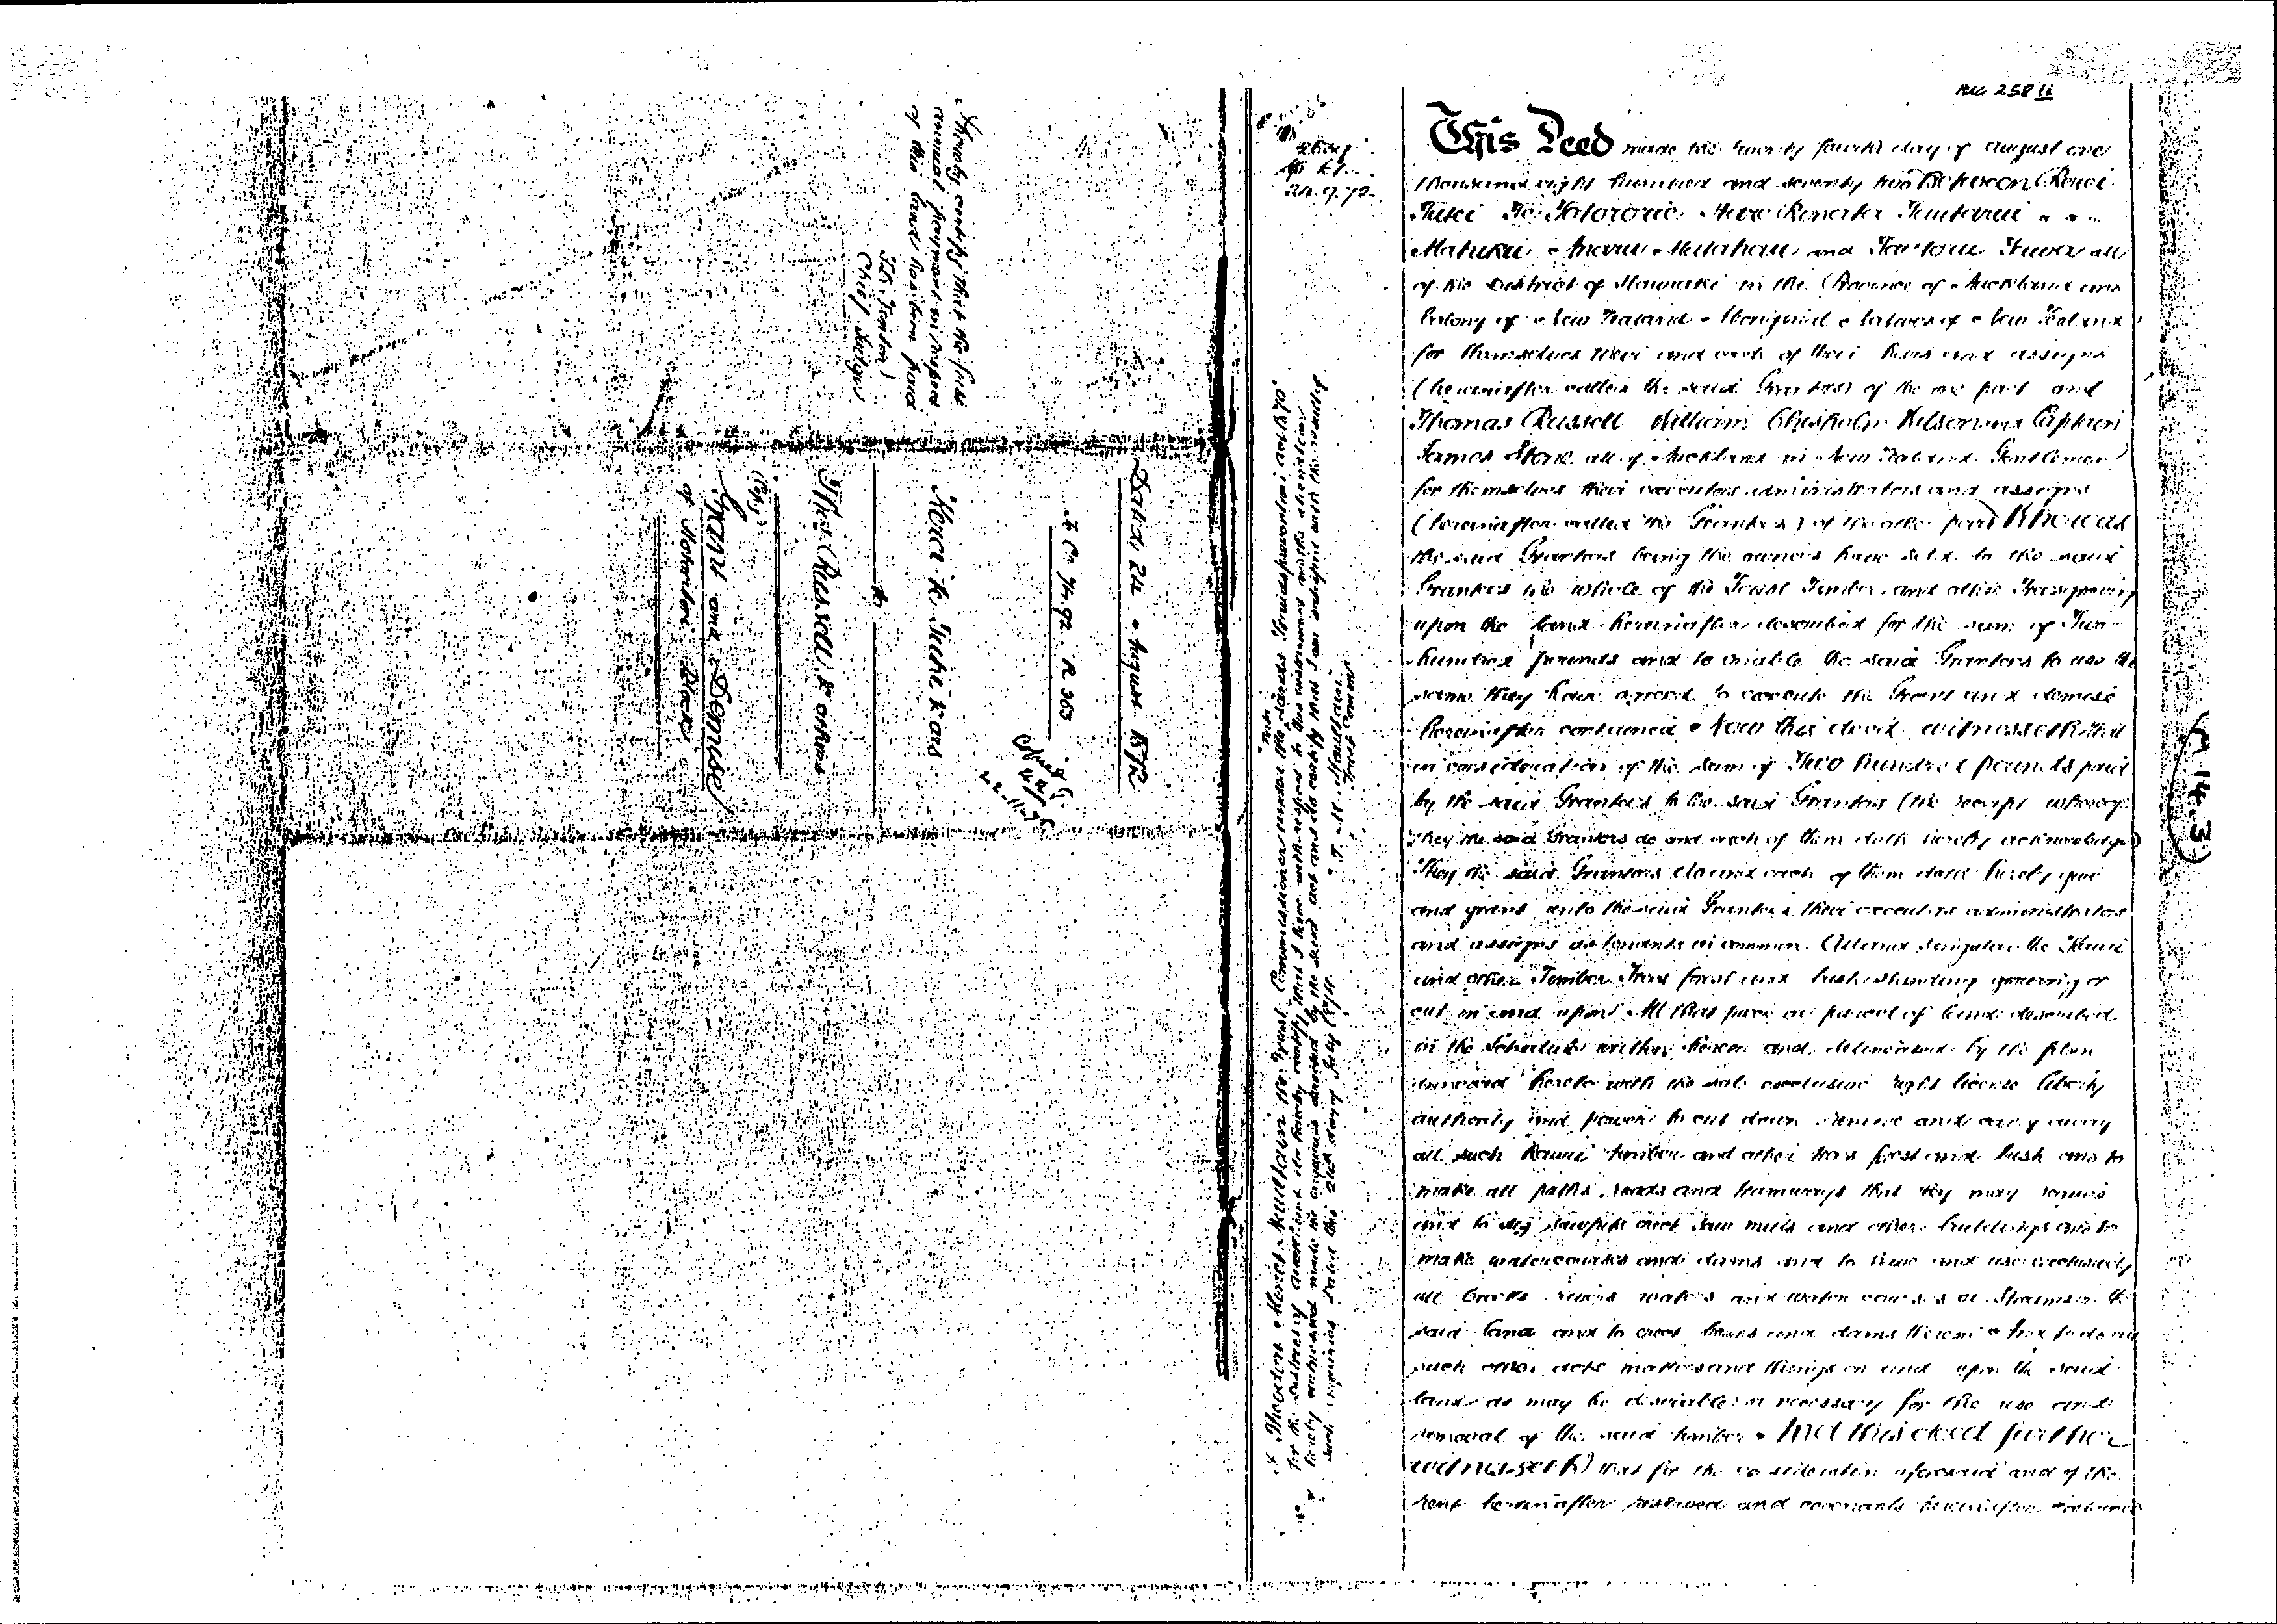 I hereby certify that the full
annual payment in respect
of this land has been paid
Chief Judge
Dated 24 August 1872
to
Thos Russell & others
(Copy)
Grant and Demise
of Blocks
24.9.72
I Theodore Minet Haultain the Trust Commissioner under the
for the District of Auckland do hereby certify that I have with respect to this instrument and the alienation
thereby witnessed made the inquiries directed by the said act and do certify that I am satisfied with the result of
such inquiries Dated this day of July 1874.
T. M. Haultain
Trust Commr
This Deed made the twenty fourth day of August one
thousand eight hundred and seventy two Between
and
of the District of in the Province of Auckland and
Colony of New Zealand Aboriginal Natives of New Zealand
for themselves their and each of their heirs and assigns
(hereinafter called the said Grantors) of the one part and
Thomas Russell William Chisholm Wilson and Captain
James Stone all of Auckland in New Zealand Gentlemen
for themselves their executors administrators and assigns
(hereinafter called the Grantees) of the other part Whereas
the said Grantors being the owners have sold to the said
Grantees the whole of the Timber and other Trees growing
upon the land hereinafter described for the sum of Two
hundred pounds and to enable the said Grantees to use the
same they have agreed to execute the Grant and demise
hereinafter contained Now this deed witnesseth that
in consideration of the sum of Two hundred pounds paid
by the said Grantees to the said Grantors (the receipt whereof
they the said Grantors do and each of them doth hereby acknowledge)
They the said Grantors do and each of them doth hereby give
and grant unto the said Grantees their executors administrators
and assigns as tenants in common All and singular the Kauri
and other Timber Trees forest and bush standing growing or
cut in and upon All that piece or parcel of land described
in the Schedule written hereon and delineated by the plan
annexed hereto with the sole exclusive right license liberty
authority and power to cut down remove and carry away
all such Kauri timber and other trees forest and bush and to
make all paths roads and tramways that they may require
and to dig sawpits erect saw mills and other buildings and to
make watercourses and dams and to have and use exclusively
all Creeks rivers waters and water courses or Streams on the
said land and to erect booms and dams thereon And to do all
such other acts matters and things on and upon the said
land as may be desirable or necessary for the use and
removal of the said timber And this deed further
witnesseth that for the consideration aforesaid and of the
rent hereinafter reserved and covenants hereinafter contained